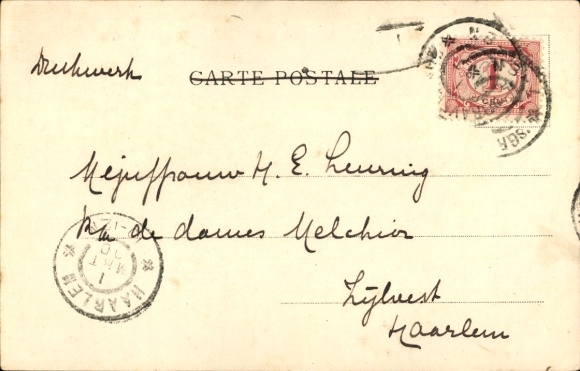 Drukwerk
CARTE POSTALE
1
Mejuffrouw H. E. Leuring
p/a de dames Melchior
Zijlvest
Haarlem
HAARLEM
1 MRT